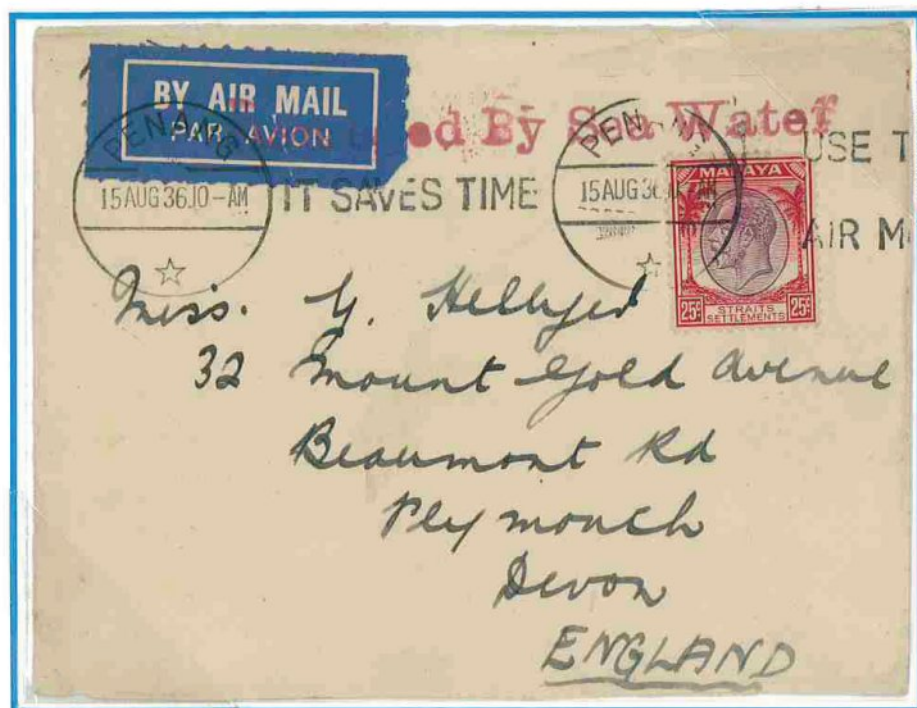 BY AIR MAIL
PAR AVION
By Sea Water
PENANG
15 AUG 36.10-AM
IT SAVES TIME
PENANG
15 AUG 36.10-AM
USE T
AIR M
MALAYA
25c STRAITS SETTLEMENTS 25c
Miss. Y. Hellyer
32 Mount Gold Avenue
Beaumont Rd
Plymouth
Devon
ENGLAND